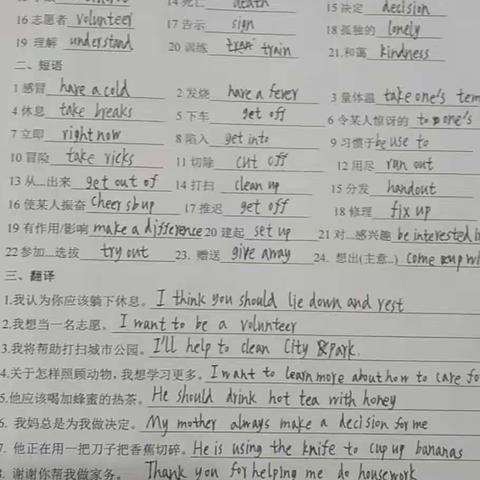 14 死亡 death 15 决定 decision
16 志愿者 volunteer 17 告示 sign 18 孤独的 lonely
19 理解 understand 20 训练 train 21.和蔼 kindness
二、短语
1 感冒 have a cold 2 发烧 have a fever 3 量体温 take one's tem
4 休息 take breaks 5 下车 get off 6 令某人惊讶的 to one's
7 立即 right now 8 陷入 get into 9 习惯于 be use to
10 冒险 take ricks 11 切除 cut off 12 用尽 run out
13 从...出来 get out of 14 打扫 clean up 15 分发 handout
16 使某人振奋 Cheer sb up 17 推迟 get off 18 修理 fix up
19 有作用/影响 make a difference 20 建起 set up 21 对...感兴趣 be interested in
22 参加...选拔 try out 23. 赠送 give away 24. 想出(主意..) come up w
三、翻译
1.我认为你应该躺下休息。I think you should lie down and rest
2.我想当一名志愿。I want to be a volunteer
3.我将帮助打扫城市公园。I'll help to clean City Park.
4.关于怎样照顾动物，我想学习更多。I want to learn more about how to care fo
5.他应该喝加蜂蜜的热茶。He should drink hot tea with honey
6. 我妈总是为我做决定。My mother always make a decision for me
7. 他正在用一把刀子把香蕉切碎。He is using the knife to cup up bananas
8. 谢谢你帮我做家务。Thank you for helping me do housework